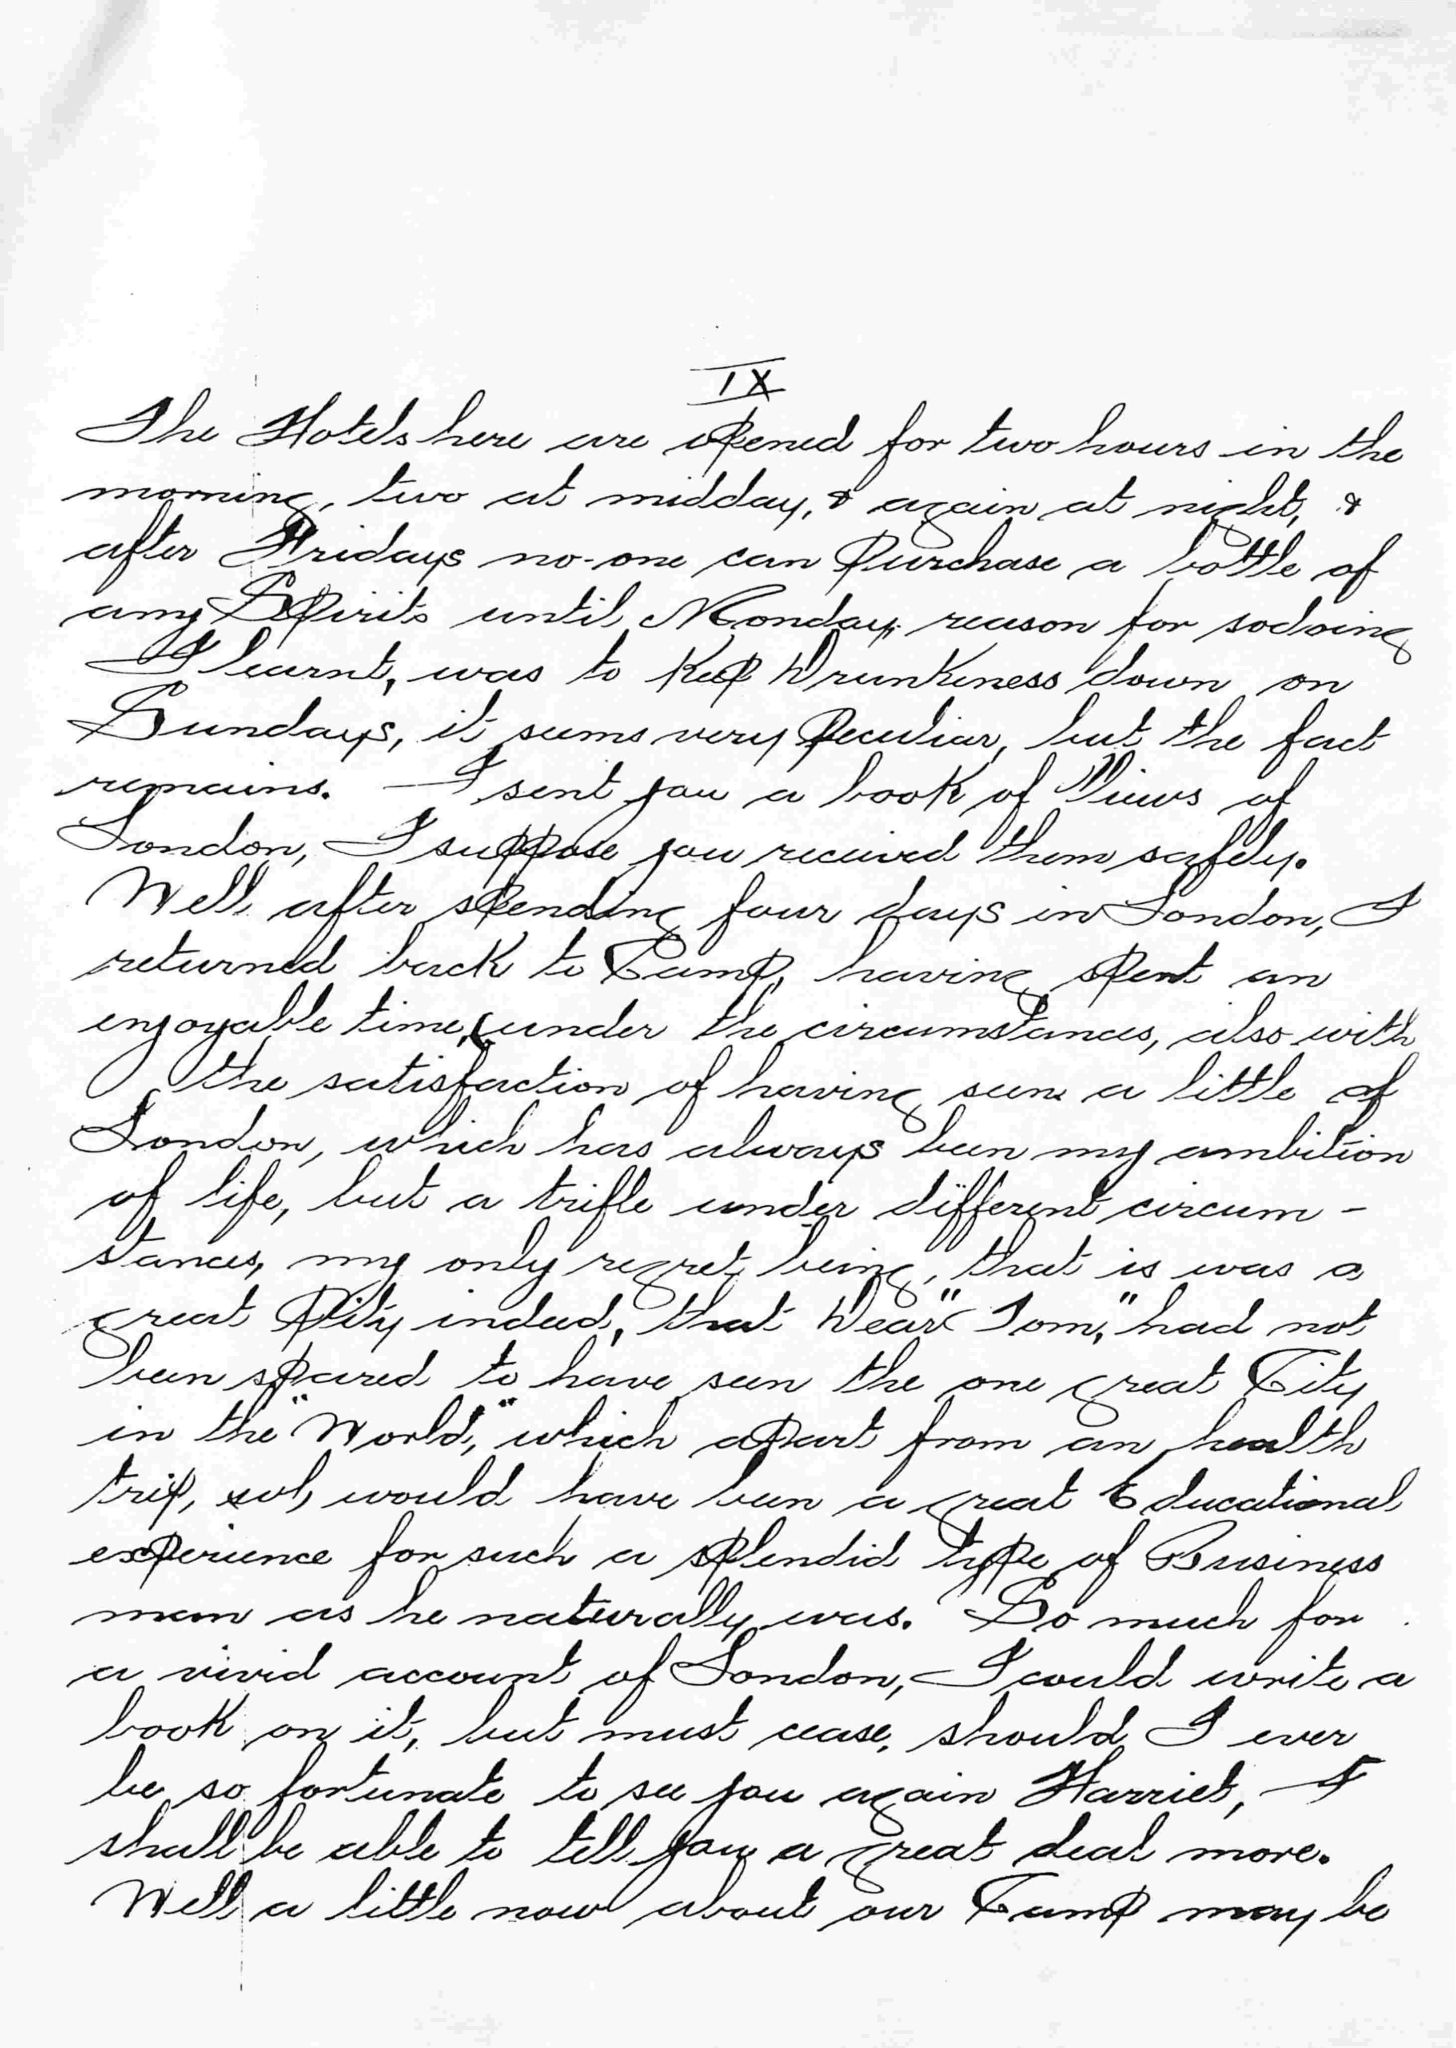 IX
The Hotels here are opened for two hours in the
morning, two at midday, & again at night, &
after Fridays no-one can purchase a bottle of
any Spirits until Monday, reason for sodoing
I learnt, was to keep Drunkiness down on
Sundays, it seems very peculiar, but the fact
remains. I sent you a book of Views of
London, I suppose you received them safely.
Well after spending four days in London, I
returned back to Camp, having spent an
enjoyable time, under the circumstances, also with
the satisfaction of having seen a little of
London, which has always been my ambition
of life, but a trifle under different circum-
stances, my only regret being, that is was a
great pity indeed, that Dear "Tom," had not
been spared to have seen the one great City
in the "World," which apart from an health
trip, would have been a great Educational
experience for such a splendid type of Business
man as he naturally was. So much for
a vivid account of London, I could write a
book on it, but must cease, should I ever
be so fortunate to see you again Harriet, I
shall be able to tell you a great deal more.
Well a little now about our Camp may be